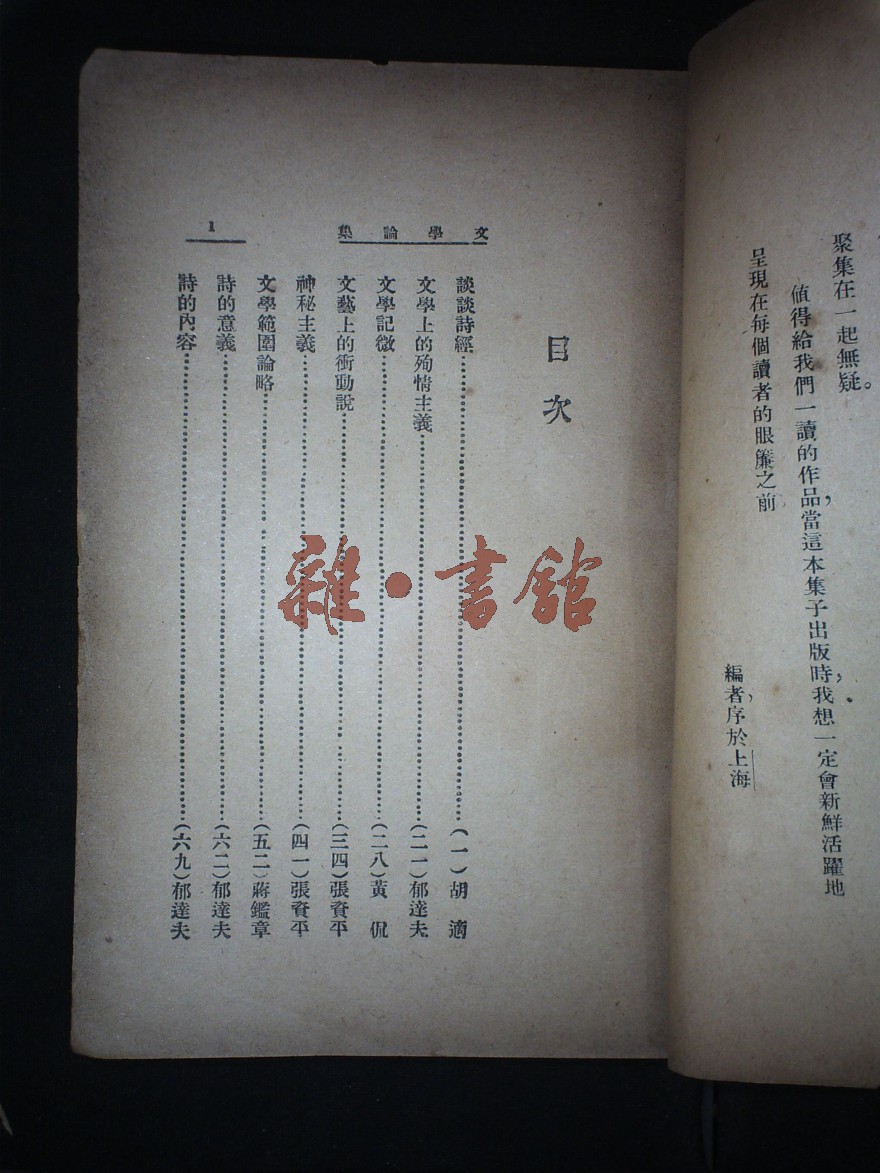 聚集在一起無疑。
值得給我們一讀的作品,當這本集子出版時,我想一定會新鮮活躍地
呈現在每個讀者的眼簾之前
編者,序於上海
文學論集
1
目次
談談詩經……(一)胡適
文學上的殉情主義……(二一)郁達夫
文學記微……(二八)黃侃
文藝上的衝動說……(三四)張資平
神秘主義……(四一)張資平
文學範圍論略……(五二)蔣鑑章
詩的意義……(六二)郁達夫
詩的內容……(六九)郁達夫
雜·書館